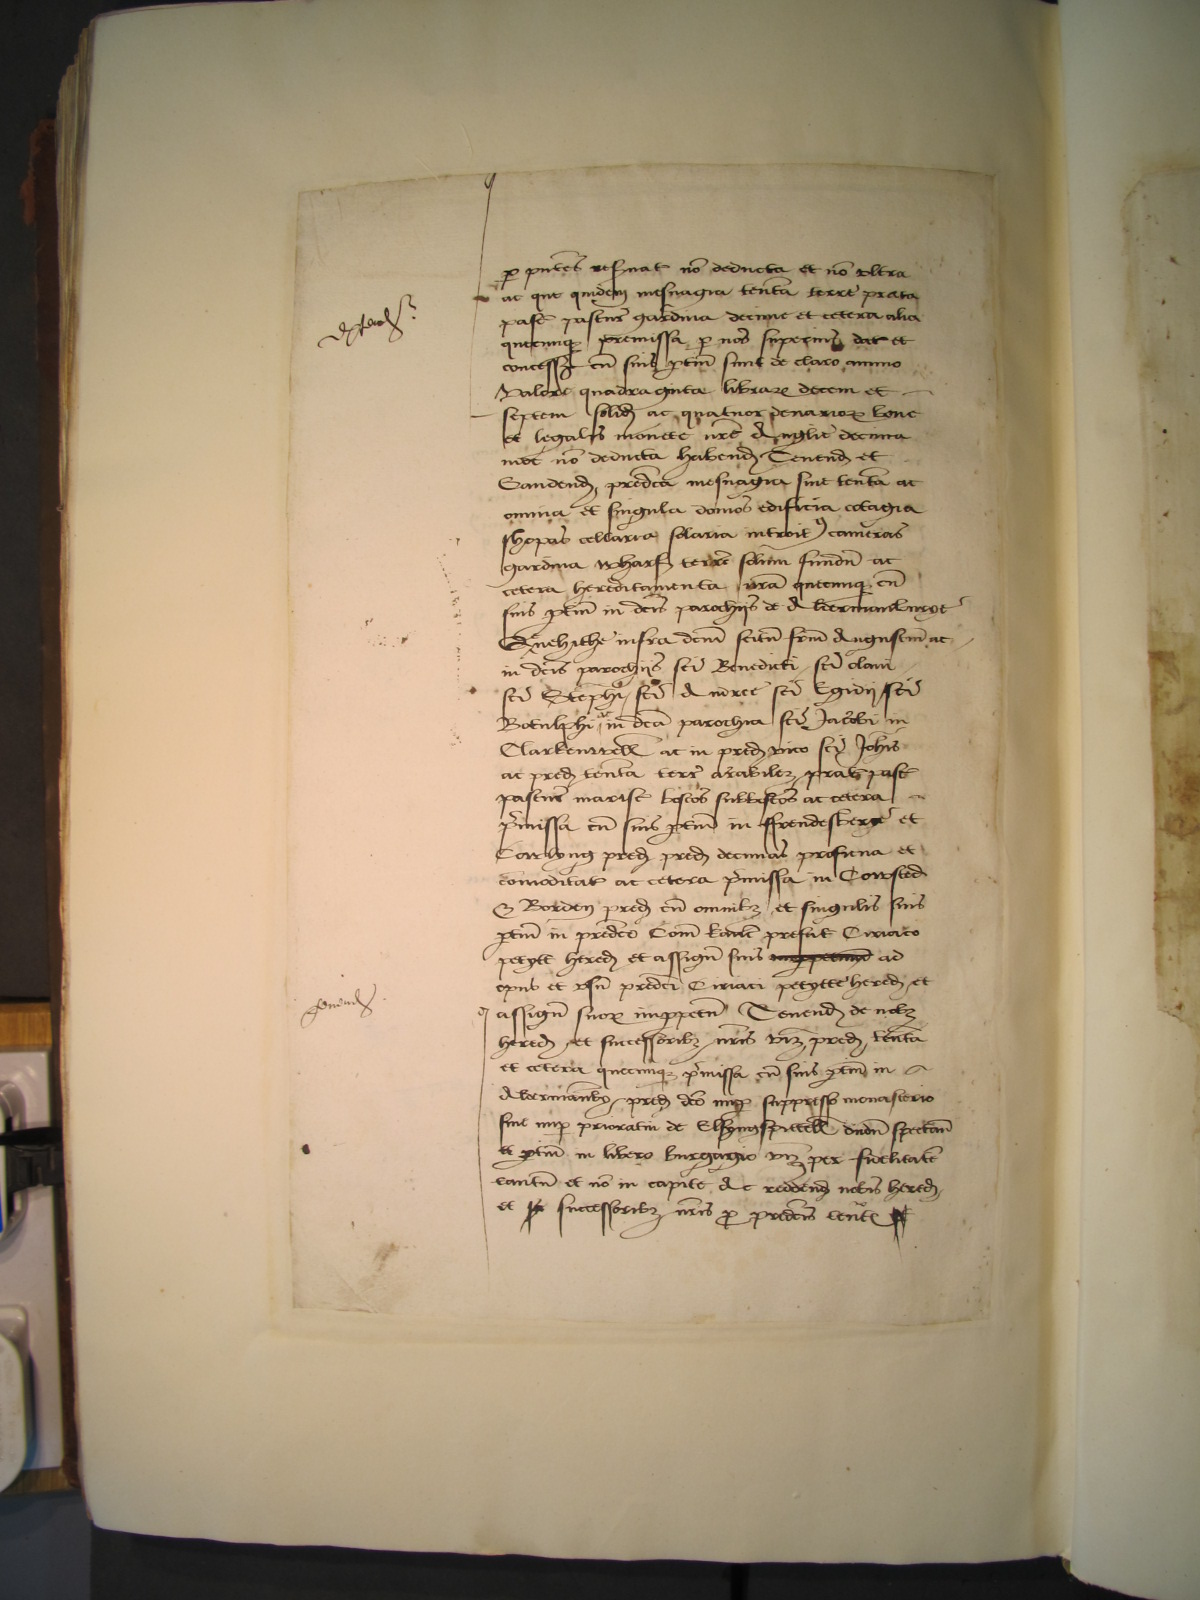 p pntes resuat no deducta et no vltra
ac que quidem mesuagia tenta terre prata
past pastur gardina decime et cetera alia
quecunq premissa p nos superius dat et
concess cu suis ptin sunt de claro annuo
Valore quadraginta librar decem et
septem solid ac quatuor denarior bone
et legalis monete nre Anglie decima
inde no deducta habend Tenend et
Gaudend predca mesuagia siue tenta ac
omnia et singula domos edificia cotagia
shopas cellaria solaria introit cameras
gardina wharf terre solum fundu ac
cetera hereditamenta nra quecunq cu
suis ptin in dcis parochijs de Aldermanburye
Quehithe infra dcm scitu frm Augusten ac
in dcis parochijs sci Benedicti sci olaui
sci Stephi sci Andree sci Egidij sci
Botulphi ac in dca parochia sci Jacobi in
Clarkenwell ac in pred vico sci Johis
ac pred tenta terr arabilez prat past
pastur marisc boscos subboscos ac cetera
pmissa cu suis ptin in et
pred pred decimas proficua et
comoditat ac cetera pmissa in
& Borden pred cu omnibz et singulis suis
ptin in predco Com Kanc prefat Ciriaco
petytt hered et assign suis ad
opus et vsu predci Ciriaci petytte hered et
assign suor imppetu Tenend de nobz
hered et successoribz nris viz pred tenta
et cetera quecunq pmissa cu suis ptin in
Aldermanby pred dco nup suppresso monasterio
siue nup prioratui de Elsyngspittell dudu spectan
et ptin in libero burgagio viz per fidelitate
tantu et no in capite Ac reddend nobis hered
et successoribz nris p predcis tent